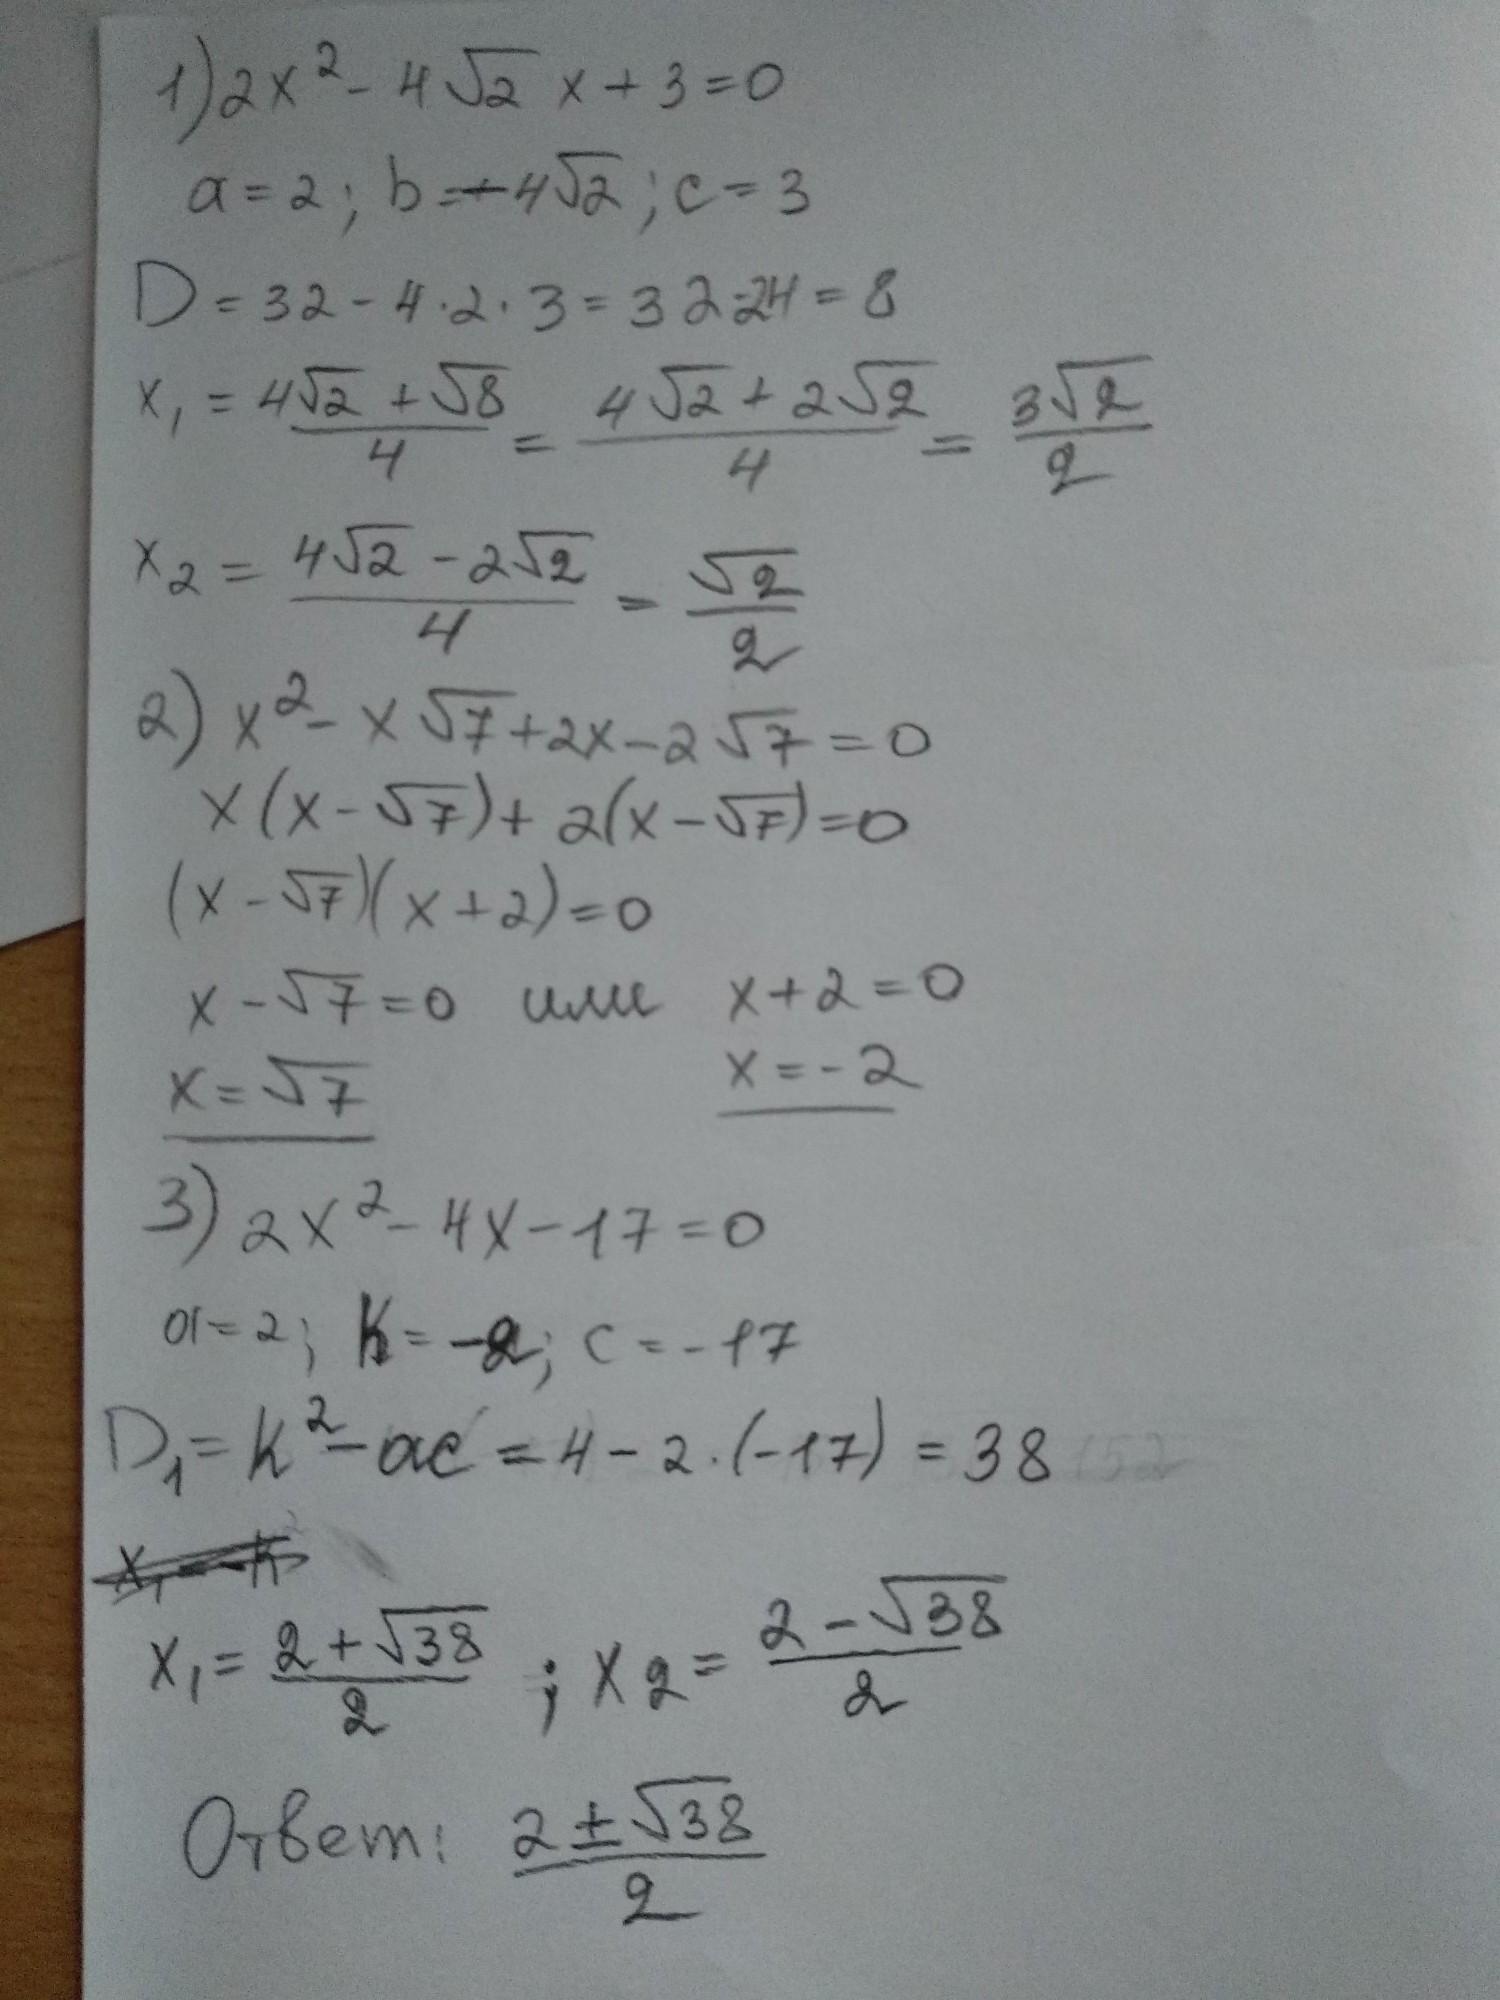 1) 2x² - 4√2 x + 3 = 0
a = 2; b = -4√2; c = 3
D = 32 - 4·2·3 = 32-24 = 8
x₁ = (4√2 + √8)/4 = (4√2 + 2√2)/4 = 3√2/2
x₂ = (4√2 - 2√2)/4 = √2/2
2) x² - x√7 + 2x - 2√7 = 0
x(x - √7) + 2(x - √7) = 0
(x - √7)(x + 2) = 0
x - √7 = 0 или x + 2 = 0
x = √7 x = -2
3) 2x² - 4x - 17 = 0
a = 2; k = -2; c = -17
D₁ = k² - ac = 4 - 2·(-17) = 38
x₁ = -k
x₁ = (2 + √38)/2 ; x₂ = (2 - √38)/2
Ответ: (2 ± √38)/2